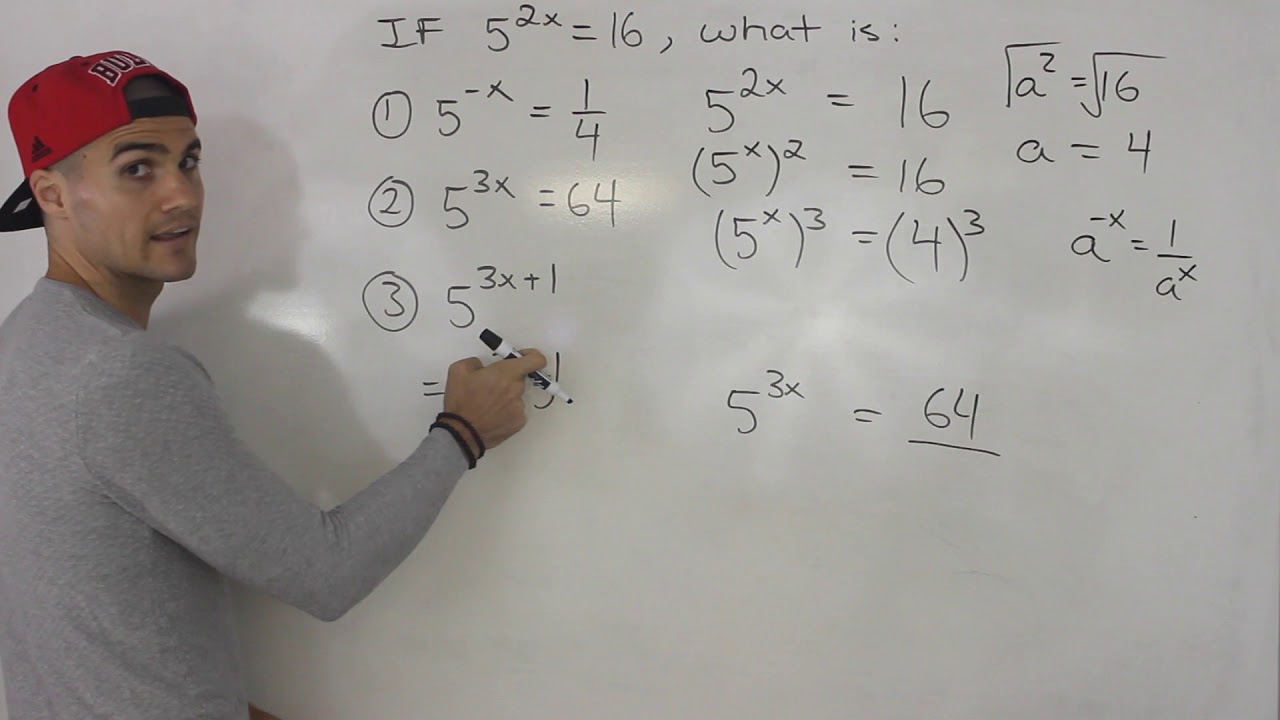 IF 5^2x = 16, what is:
① 5^-x = 1/4
② 5^3x = 64
③ 5^3x+1
=
5^2x = 16
(5^x)^2 = 16
(5^x)^3 = (4)^3
5^3x = 64
√a^2 = √16
a = 4
a^-x = 1/a^x